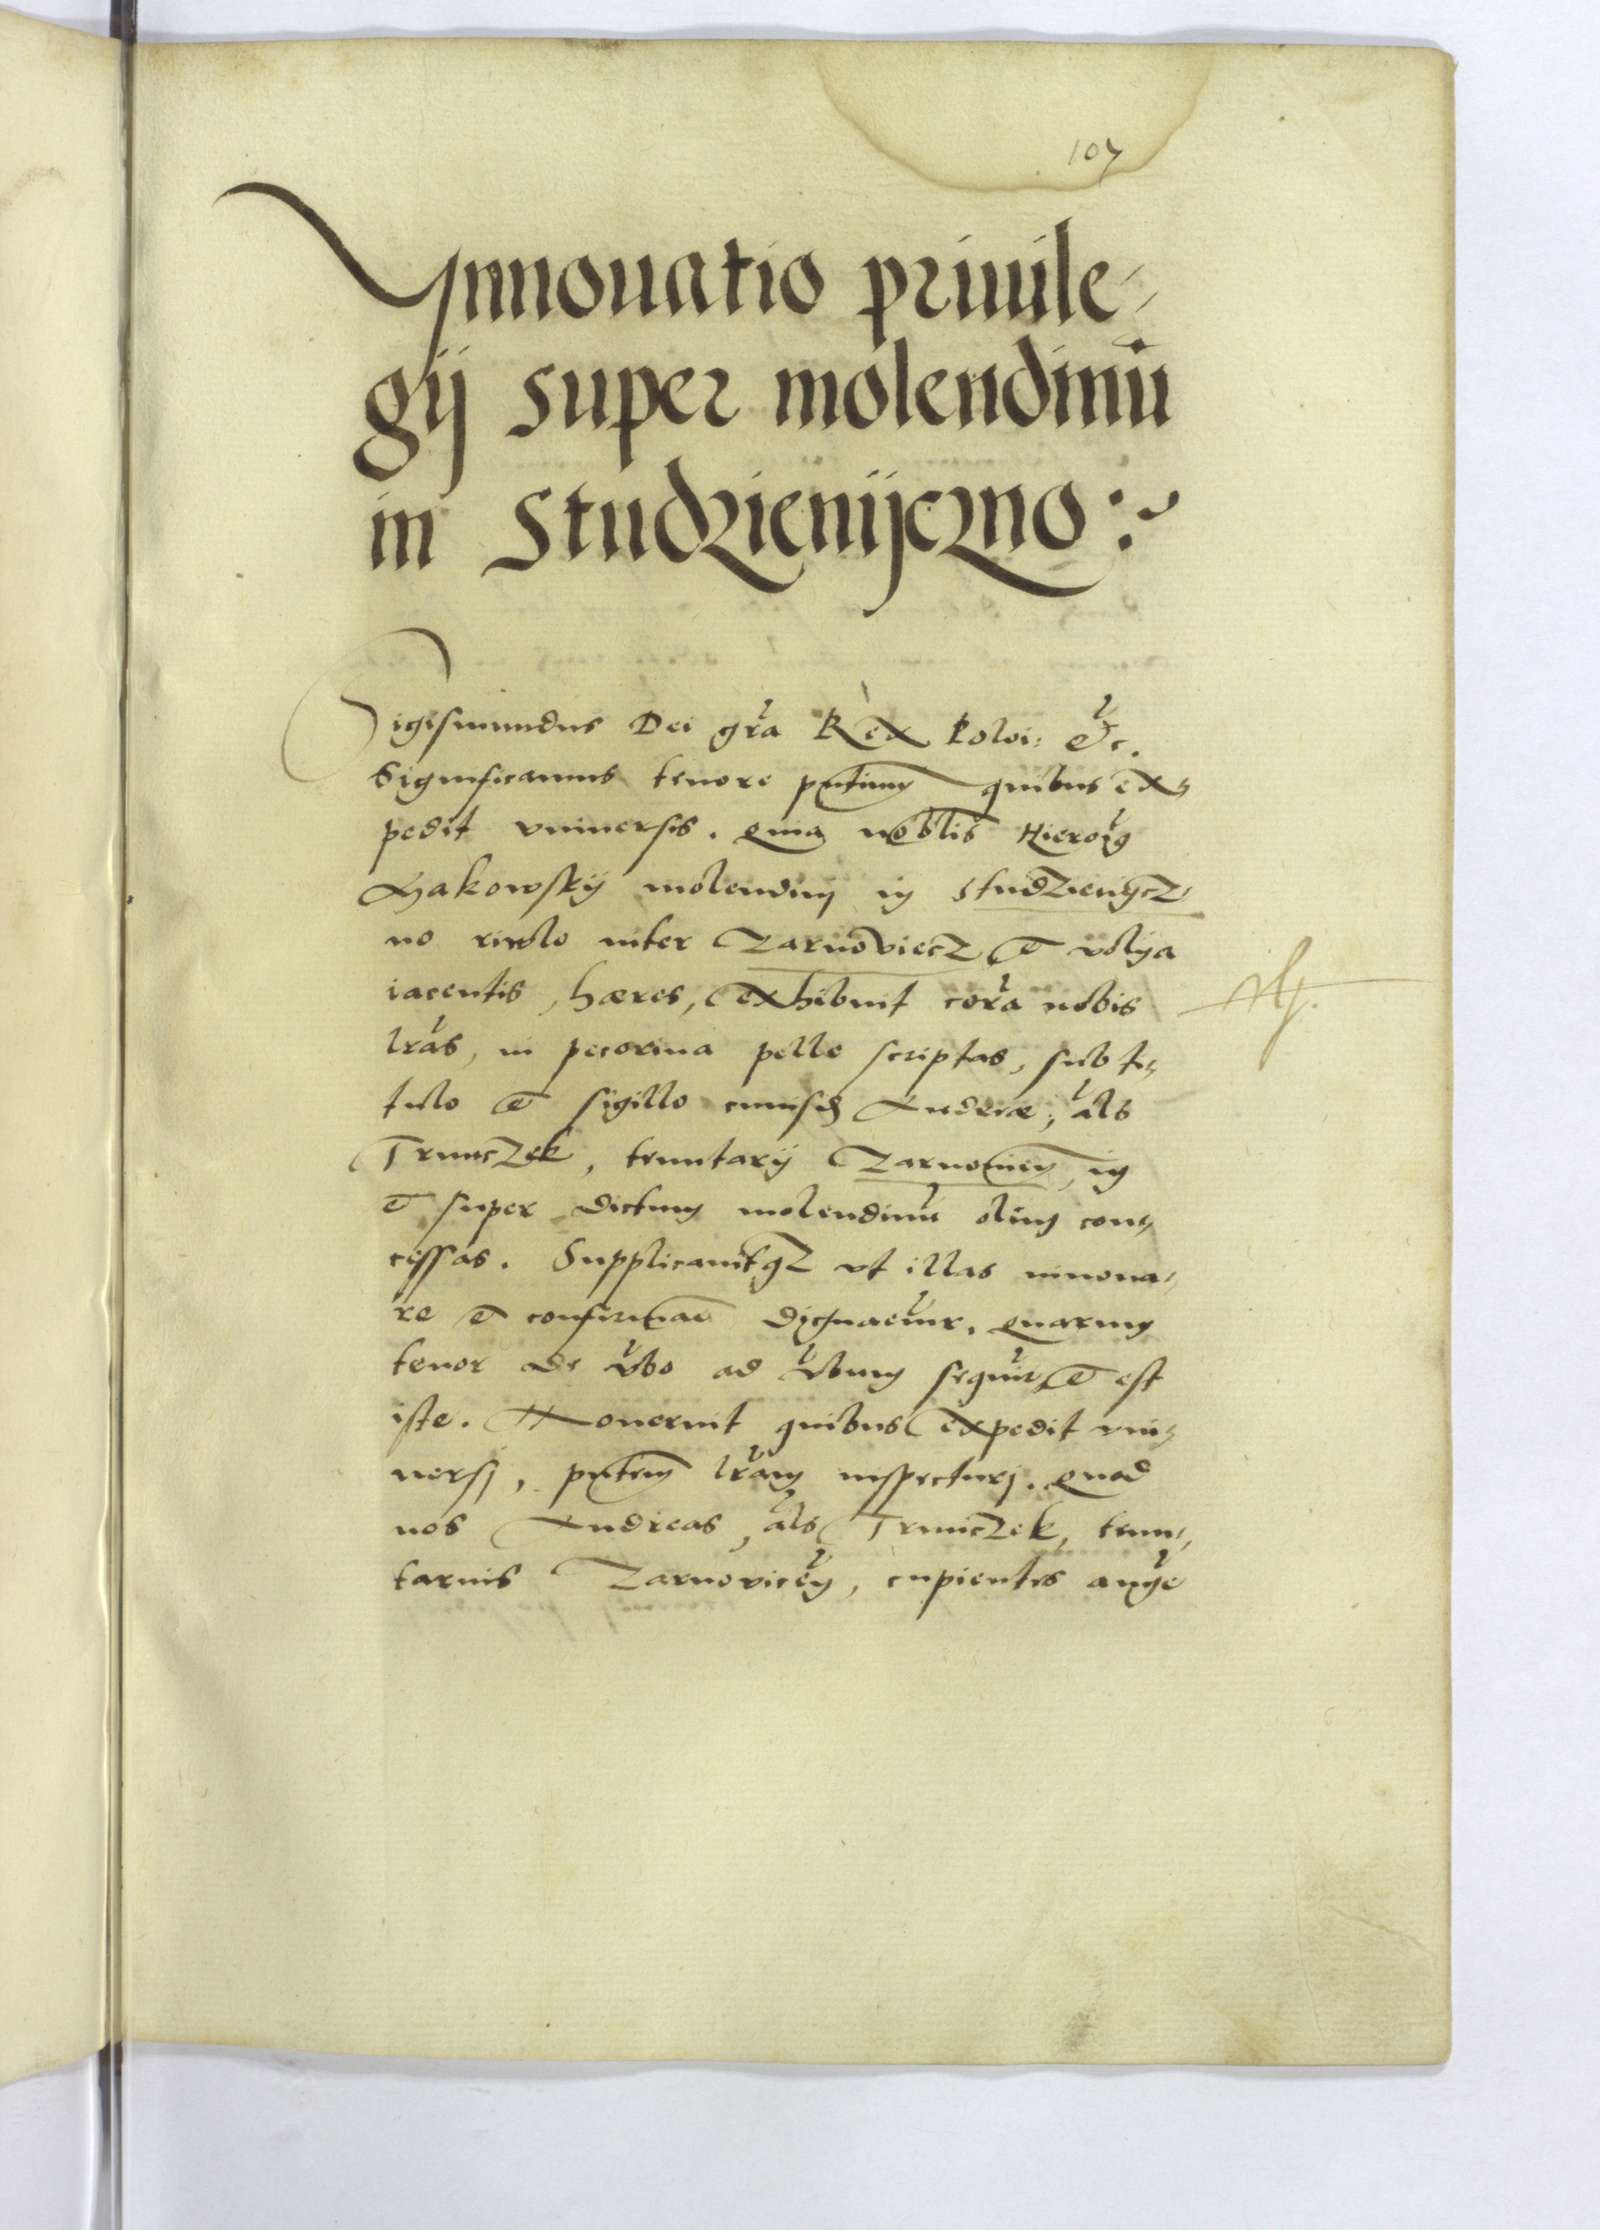 107
Ynnouatio priuile-
gij super molendinū
in Studzienijczno:~
Sigismundus Dei grã Rex Poloi: Etc.
Significamus tenore pñtium quibus ex-
pedit vniuersis. Quia nobĩlis Hieroĩg
molendinj in Studzienycz-
no riwlo inter Zarnoviecz et volija
iacentis, hæres, exhibuit corã nobis
lrãs, in pecorina pelle scriptas, sub ti-
tulo et sigillo cuiusd Andreæ, als
Trunczek, tenutarij Zarnouien, in
et super dictum molendinũ olim con-
cessas. Supplicauitqz vt illas innoua-
re et confirmare dignaremur. Quarum
tenor de vbo ad vbum sequit et est
iste. Nouerint quibus expedit vni-
uersj, pñtem lrãm inspecturj. Quod
nos Andreas, als Trunczek, tenu-
tarius Zarnovicen, cupientes auge